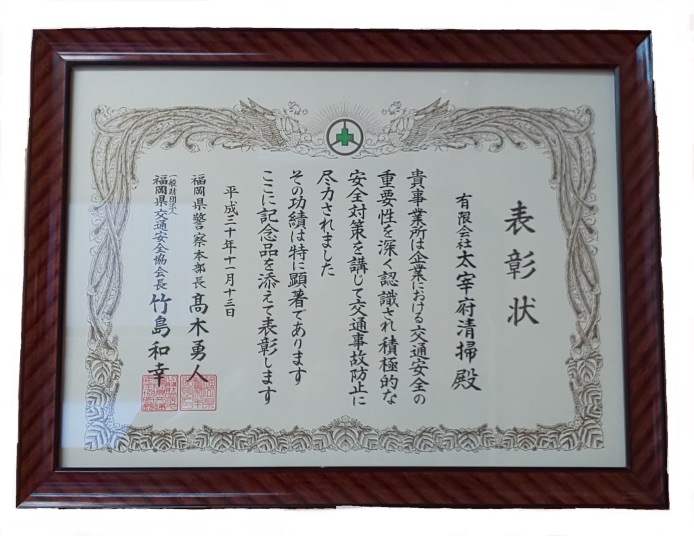 表彰状
有限会社 太宰府清掃 殿
貴事業所は企業における交通安全の
重要性を深く認識され積極的な
安全対策を講じて交通事故防止に
尽力されました
その功績は特に顕著であります
ここに記念品を添えて表彰します
平成三十年十一月十三日
福岡県警察本部長 髙木勇人
一般財団法人
福岡県交通安全協会長 竹島和幸